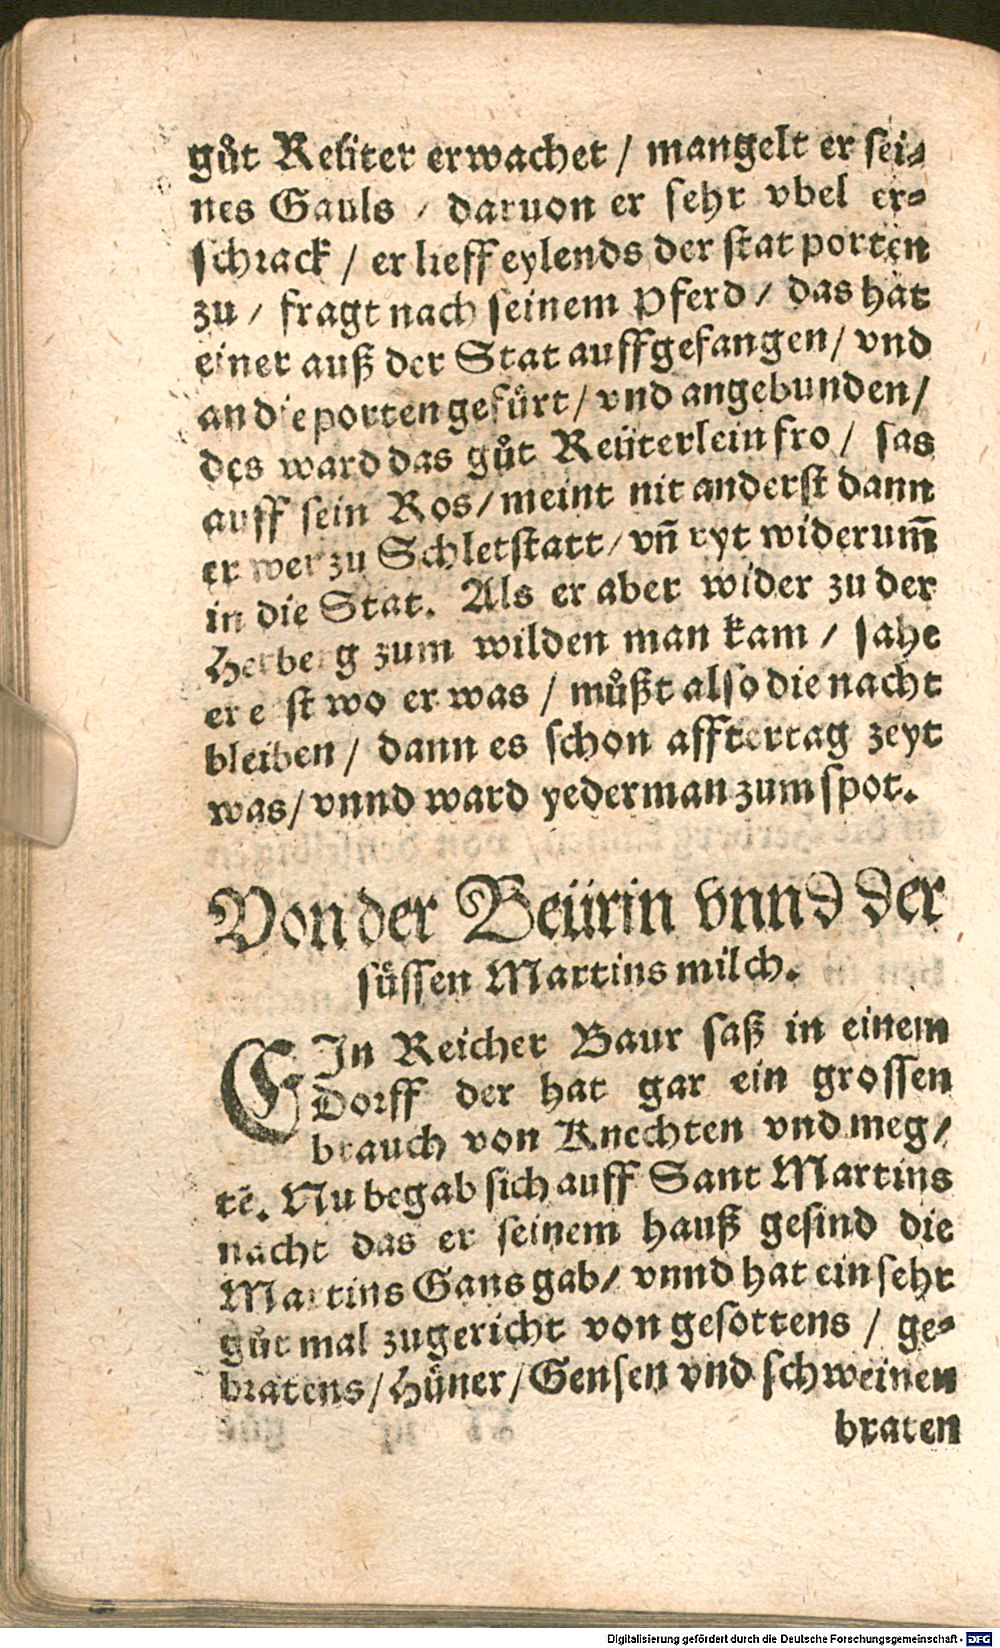 gůt Reüter erwachet / mangelt er sei⸗
nes Gauls / daruon er sehr vbel er⸗
schrack / er lieff eylends der stat porten
zu / fragt nach seinem Pferd / das hat
einer auß der Stat auffgefangen / vnd
an die porten gefůrt / vnd angebunden /
des ward das gůt Reüterlein fro / sas
auff sein Ros / meint nit anderst dann
er wer zu Schletstatt / vn̄ ryt widerum̄
in die Stat. Als er aber wider zu der
Herberg zum wilden man kam / sahe
er erst wo er was / můßt also die nacht
bleiben / dann es schon afftertag zeyt
was / vnnd ward yederman zum spot.
Von der Beürin vnnd der
sůssen Martins milch.
EIn Reicher Baur saß in einem
Dorff der hat gar ein grossen
brauch von Knechten vnd meg /
tē. Nu begab sich auff Sant Martins
nacht das er seinem hauß gesind die
Martins Gans gab / vnnd hat ein sehr
gůt mal zugericht von gesottens / ge⸗
bratens / Hůner / Gensen vnd schweinen
braten
Digitalisierung gefördert durch die Deutsche Forschungsgemeinschaft - DFG